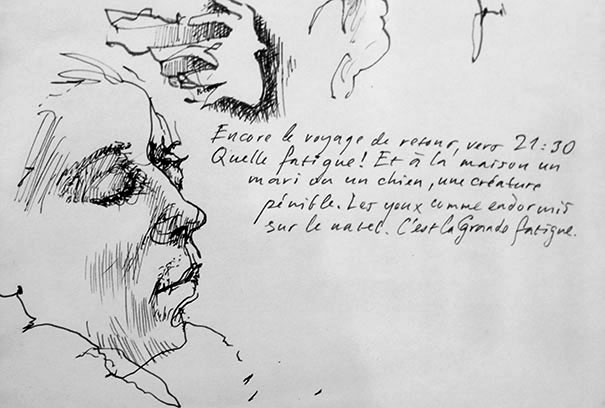 Encore le voyage de retour, vers 21:30
Quelle fatigue! Et à la maison un
mari ou un chien, une créature
pénible. Les yeux comme endormis
sur le natel. C'est la Grande fatigue.